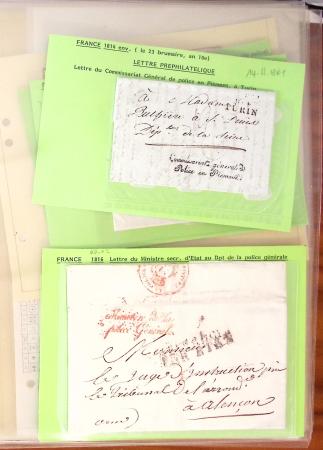 FRANCE 1814 nov. ( le 23 brumaire, an 10e)
LETTRE PREPHILATELIQUE
Lettre du Commissariat Général de police en Piemont, à Turin
14.11.1801
à Madame
TURIN
à St. Denis
Dép. de la Seine
Commissariat général de
Police en Piémont
FRANCE 1816 Lettre du Ministre secr. d'Etat au Dpt de la police générale
Ministre de la
police Générale
Monsieur
le juge d'instruction près
le Tribunal de l'arrond.
à alençon
(orne)